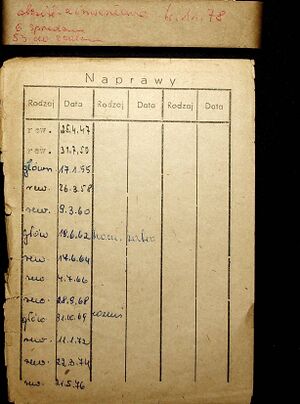 k. dn. 78
Naprawy
Rodzaj Data Rodzaj Data Rodzaj Data
rew. 25.4.47
rew. 31.7.50
główn 17.1.55
rew. 26.3.58
rew. 9.3.60
głów 18.6.62
rew 17.6.64
rew 4.7.66
rew 28.9.68
głów 31.10.69
rew 11.1.72
rew 22.3.74
rew. 21.5.76